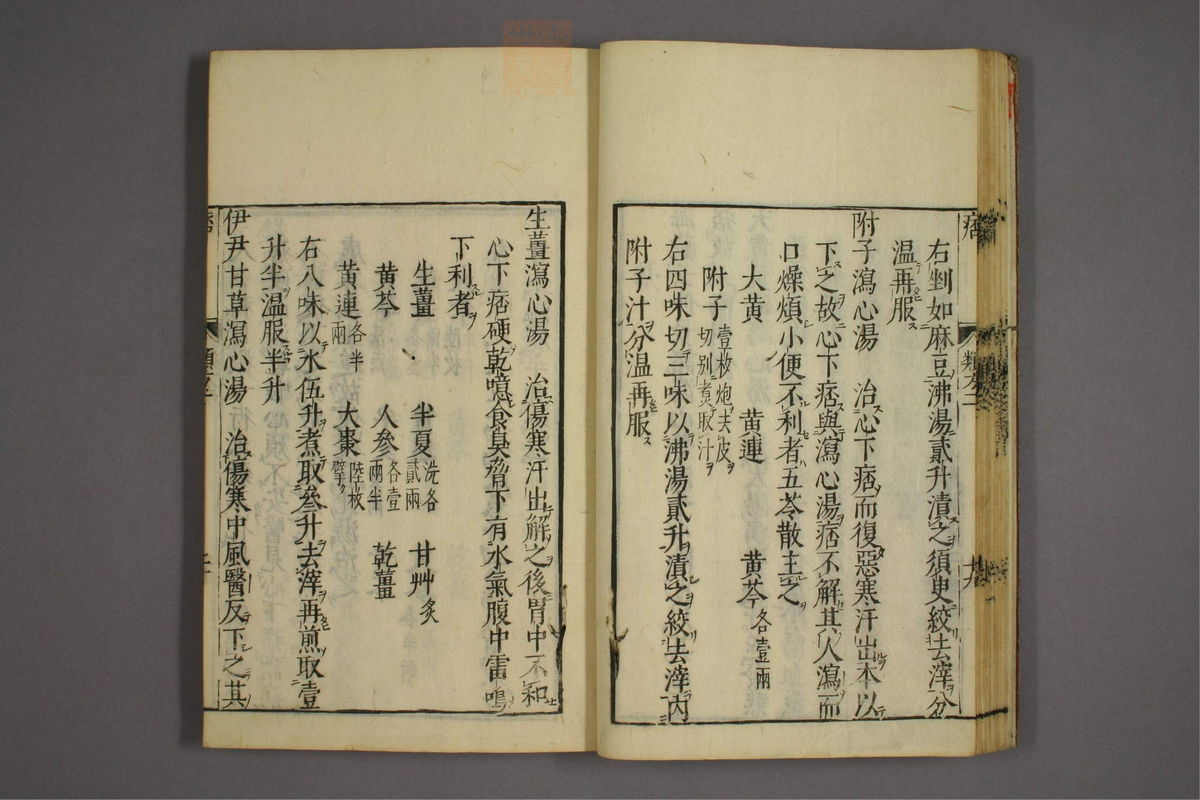 痞
類方二
十九
右剉如麻豆沸湯貳升漬之須臾絞去滓分
温再服
附子瀉心湯　治心下痞而復惡寒汗出本以
下之故心下痞與瀉心湯痞不解其人瀉而
口燥煩小便不利者五苓散主之
大黄　黄連　黄芩各壹兩
附子壹枚炮去皮切别煮取汁
右四味切三味以沸湯貳升漬之絞去滓内
附子汁分温再服
生薑瀉心湯　治傷寒汗出解之後胃中不和
心下痞硬乾噫食臭脅下有水氣腹中雷鳴
下利者
生薑　半夏洗各貳兩　甘艸炙
黄芩　人參各壹兩半　乾薑
黄連各半兩　大棗陸枚擘
右八味以水伍升煮取叄升去滓再煎取壹
升半温服半升
伊尹甘草瀉心湯　治傷寒中風醫反下之其